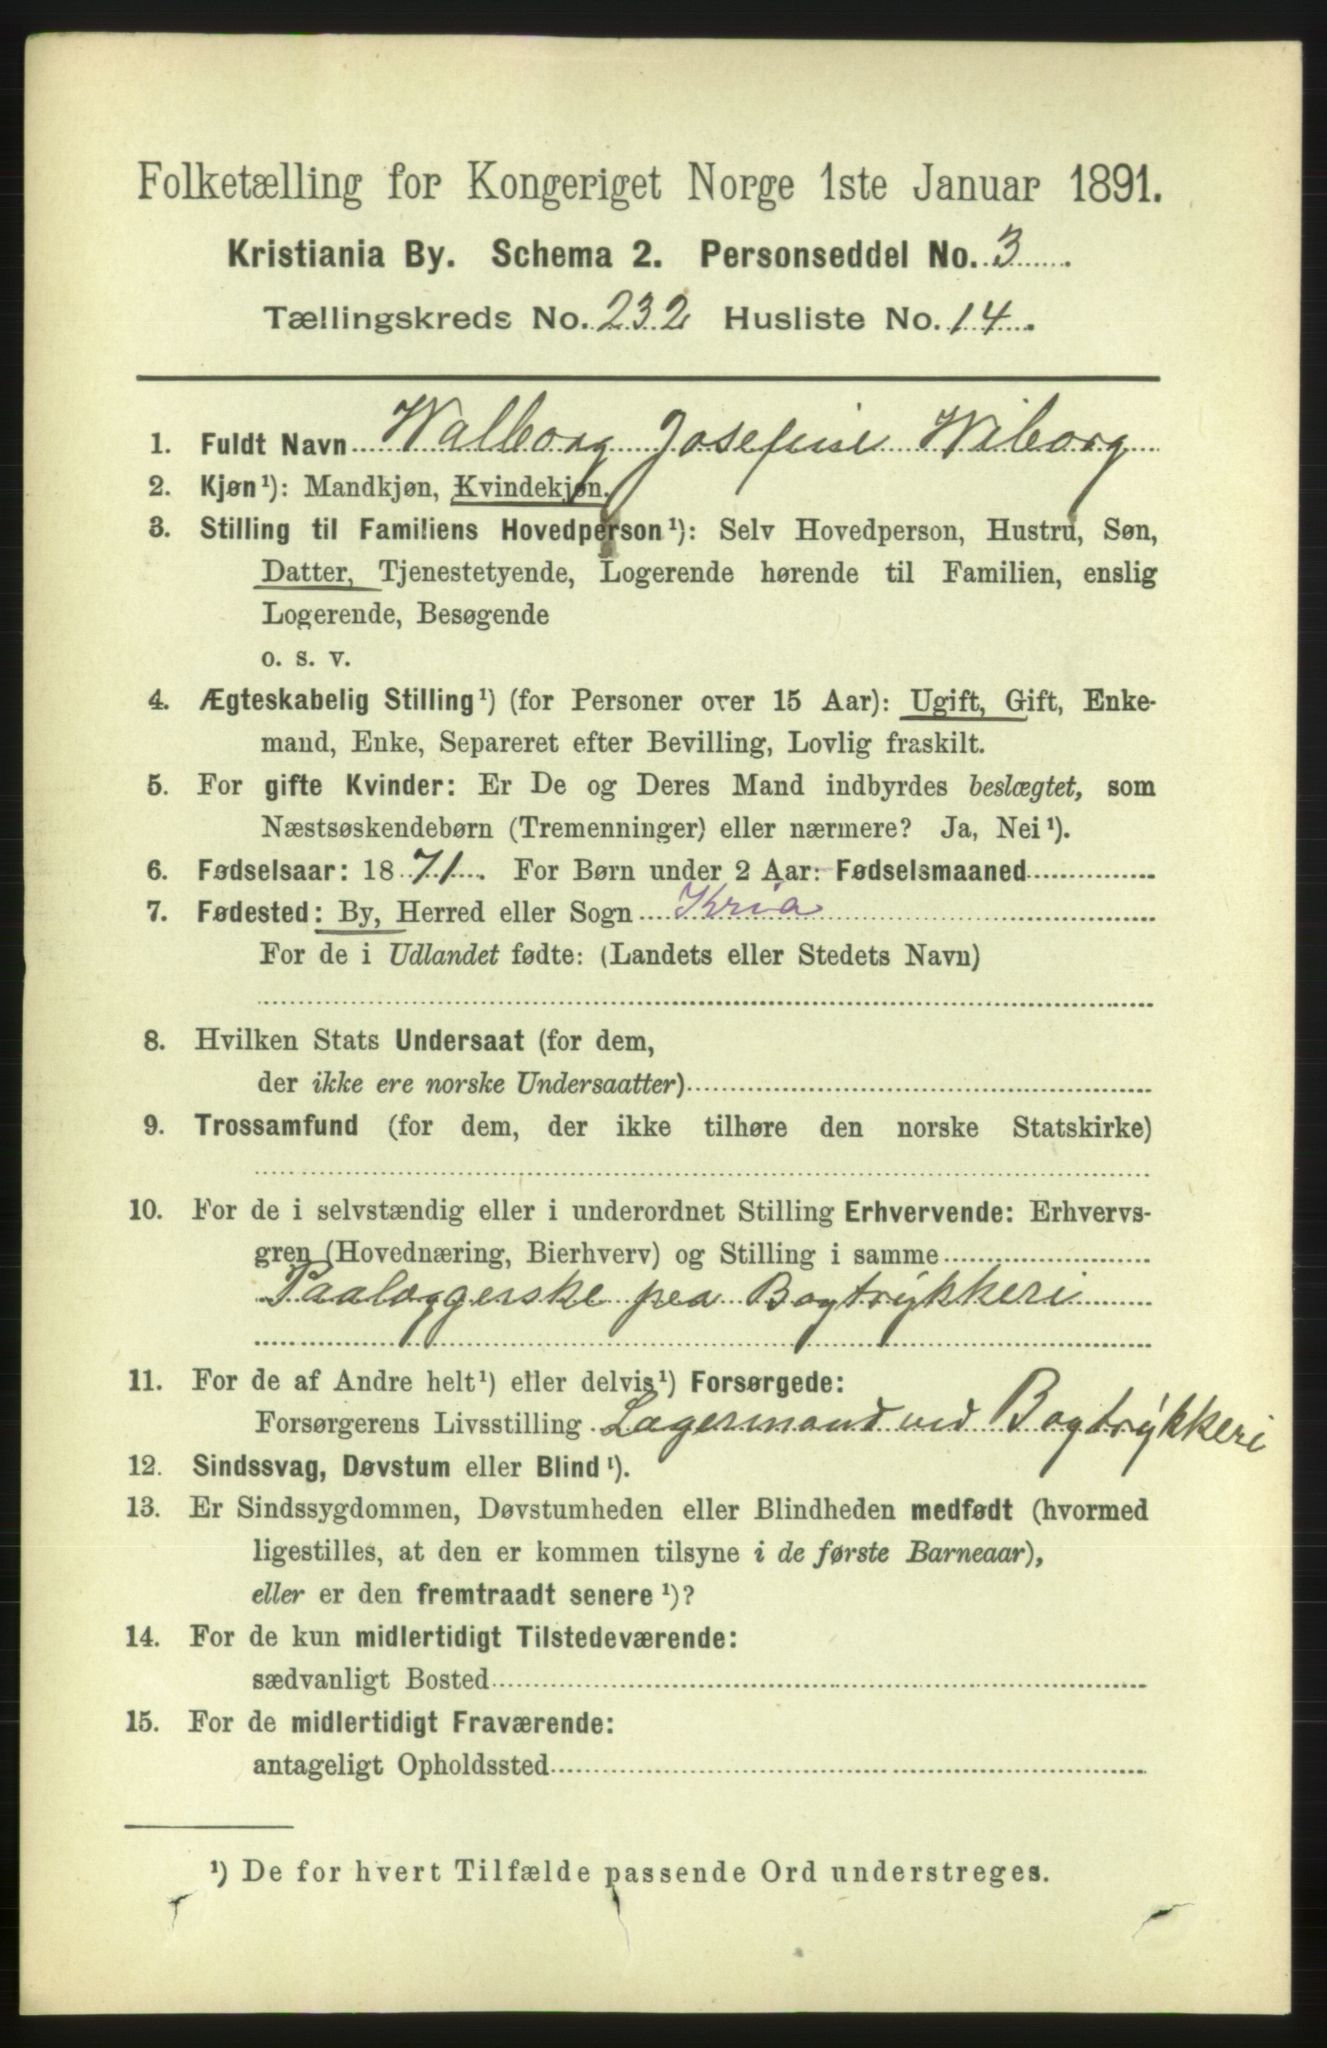 Folketælling for Kongeriget Norge 1ste Januar 1891.
Kristiania By. Schema 2. Personseddel No. 3
Tællingskreds No. 232 Husliste No. 14.
1. Fuldt Navn Walborg Josefine Wiborg
2. Kjøn¹): Mandkjøn, Kvindekjøn.
3. Stilling til Familiens Hovedperson¹): Selv Hovedperson, Hustru, Søn,
Datter, Tjenestetyende, Logerende hørende til Familien, enslig
Logerende, Besøgende
o. s. v.
4. Ægteskabelig Stilling¹) (for Personer over 15 Aar): Ugift, Gift, Enke-
mand, Enke, Separeret efter Bevilling, Lovlig fraskilt.
5. For gifte Kvinder: Er De og Deres Mand indbyrdes beslægtet, som
Næstsøskendebørn (Tremenninger) eller nærmere? Ja, Nei¹).
6. Fødselsaar: 1871. For Børn under 2 Aar: Fødselsmaaned
7. Fødested: By, Herred eller Sogn Kria
For de i Udlandet fødte: (Landets eller Stedets Navn)
8. Hvilken Stats Undersaat (for dem,
der ikke ere norske Undersaatter)
9. Trossamfund (for dem, der ikke tilhøre den norske Statskirke)
10. For de i selvstændig eller i underordnet Stilling Erhvervende: Erhvervs-
gren (Hovednæring, Bierhverv) og Stilling i samme
Paalæggerske paa Bogtrykkeri
11. For de af Andre helt¹) eller delvis¹) Forsørgede:
Forsørgerens Livsstilling Lagermand ved Bogtrykkeri
12. Sindssvag, Døvstum eller Blind¹).
13. Er Sindssygdommen, Døvstumheden eller Blindheden medfødt (hvormed
ligestilles, at den er kommen tilsyne i de første Barneaar),
eller er den fremtraadt senere¹)?
14. For de kun midlertidigt Tilstedeværende:
sædvanligt Bosted
15. For de midlertidigt Fraværende:
antageligt Opholdssted
¹) De for hvert Tilfælde passende Ord understreges.